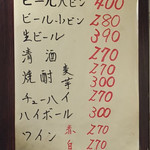 ビール大ビン 400
ビール小ビン 280
生ビール 390
清酒 270
焼酎 麦 270
芋 300
チューハイ 270
ハイボール 300
ワイン 赤 270
白 270